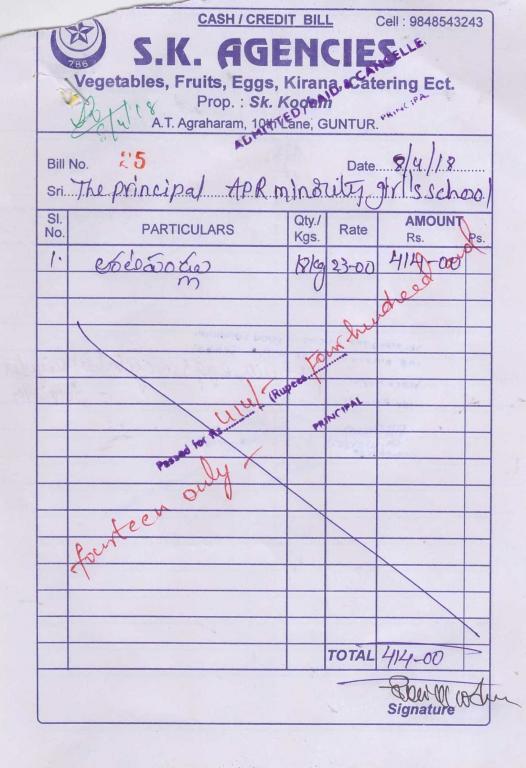 CASH / CREDIT BILL
Cell : 9848543243
786
S.K. AGENCIES
Vegetables, Fruits, Eggs, Kirana, Catering Ect.
Prop. : Sk. Kodam
A.T. Agraharam, 10th Lane, GUNTUR.
ADMITTED, PAID & CANCELLE.
PRINCIPA
8/4/18
Bill No. 25
Date 8/4/18
Sri. The principal APR minority girl's school
Sl. No. PARTICULARS Qty./ Kgs. Rate AMOUNT Rs. Ps.
1. 18kg 23-00 414-00
Passed for Rs. 414/- (Rupees Four hundred and
fourteen only -
PRINCIPAL
TOTAL 414-00
Signature